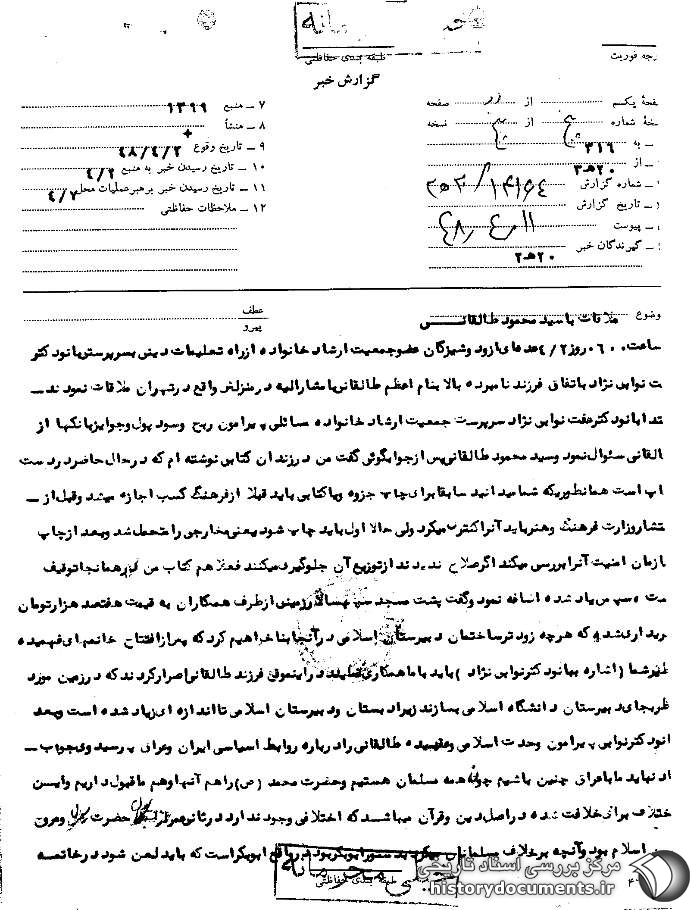 طبقه بندی حفاظتی
رجه فوریت
گزارش خبر
صفحهٔ یکم از صفحه
نسخهٔ شماره از نسخه
به ۳۱۶
از ۲۰هـ۳
شماره گزارش
تاریخ گزارش
پیوست
گیرندگان خبر
۲۰هـ۲
۷ ـ منبع ۱۳۹۹
۸ ـ منشأ
۹ ـ تاریخ وقوع ۴۸/۴/۲
۱۰ ـ تاریخ رسیدن خبر به منبع ۴/۲
۱۱ ـ تاریخ رسیدن خبر برهبرعملیات محل ۴/۷
۱۲ ـ ملاحظات حفاظتی
عطف
پیرو
وضوع ملاقات با سید محمود طالقانی
ساعت روز ۴/۲ عده‌ای از دوشیزگان عضو جمعیت ارشاد خانواده از راه تعلیمات دینی بسرپرستی بانو دکتر
ت نوابی نژاد باتفاق فرزند نامبرده بالا بنام اعظم طالقانی با مشارالیه در منزلش واقع در تهران ملاقات نمودند ـ
تدا بانو دکتر عفت نوابی نژاد سرپرست جمعیت ارشاد خانواده مسائلی پیرامون ربح وسود پول وجوایز بانکها از
القانی سئوال نمود وسید محمود طالقانی پس از جوابگوئی گفت من در زندان کتابی نوشته ام که در حال حاضر در دست
اپ است همانطوریکه شما میدانید سابقا برای چاپ جزوه ویا کتابی باید قبلا از فرهنگ کسب اجازه میشد وقبل از ـ
تشار وزارت فرهنگ وهنر باید آنرا کنترل میکرد ولی حالا اول باید چاپ شود یعنی مخارجی را متحمل شد وبعد از چاپ
ازمان امنیت آنرا بررسی میکند اگر صلاح ندیدند از توزیع آن جلوگیری میکنند فعلا هم کتاب من توقیف
ت سپس یاد شده اضافه نمود وگفت پشت مسجد زمینی از طرف همکاران به قیمت هفتصد هزار تومان
ریداری شده که هرچه زودتر ساختمان دبیرستان اسلامی در آنجا بنا خواهیم کرد که پس از افتتاح خانمهای فهمیده
نظیر شما (اشاره ببانو دکتر نوابی نژاد) باید با ما همکاری نمایند در اینموقع فرزند طالقانی اصرار کردند که در زمین مورد
ظر بجای دبیرستان دانشگاه اسلامی بسازند زیرا دبستان ودبیرستان اسلامی تا اندازه ای زیاد شده است وبعد
انو دکتر نوابی پیرامون وحدت اسلامی وعقیده طالقانی را درباره روابط سیاسی ایران وعراق پرسید وی جواب ـ
اد نباید ما با عراق چنین باشیم چون همه مسلمان هستیم وحضرت محمد (ص) را هم آنها وهم ما قبول داریم واین
ختلاف برای خلافت شده در اصل دین وقرآن میباشد که اختلافی وجود ندارد در ثانی حضرت وعرق
اسلام بود وآنچه برخلاف مسلمانان ابوبکر بود در واقع ابوبکر است که باید لعن شود در خاتمه
طبقه بندی حفاظتی
مرکز بررسی اسناد تاریخی
historydocuments.ir